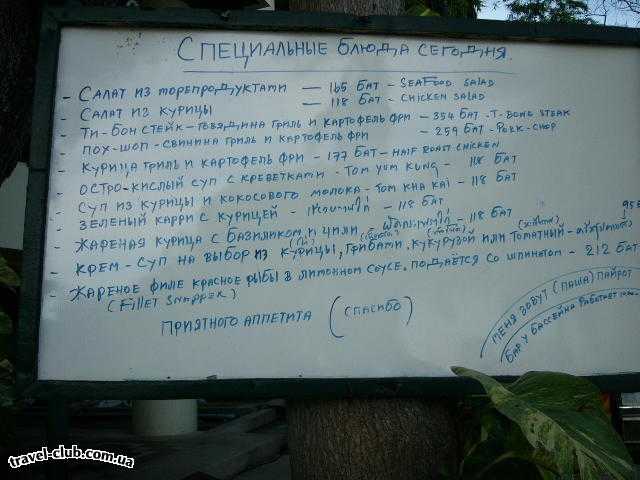 СПЕЦИАЛЬНЫЕ БЛЮДА СЕГОДНЯ.
- САЛАТ ИЗ МОРЕПРОДУКТАМИ — 165 БАТ - SEAFOOD SALAD
- САЛАТ ИЗ КУРИЦЫ — 118 БАТ - CHICKEN SALAD
- ТИ-БОН СТЕЙК-ГОВЯДИНА ГРИЛЬ И КАРТОФЕЛЬ ФРИ - 354 БАТ -T. BONE STEAK
- ПОХ-ШОП-СВИНИНА ГРИЛЬ И КАРТОФЕЛЬ ФРИ - 259 БАТ - PORK-CHOP
- КУРИЦА ГРИЛЬ И КАРТОФЕЛЬ ФРИ - 177 БАТ - HALF ROAST CHICKEN
- ОСТРО-КИСЛЫЙ СУП С КРЕВЕТКАМИ - TOM YUM KUNG - 118 БАТ
- СУП ИЗ КУРИЦЫ И КОКОСОВОГО МОЛОКА - TOM KHA KAI - 118 БАТ
- ЗЕЛЕНЫЙ КАРРИ С КУРИЦЕЙ - - 118 БАТ
- ЖАРЕНАЯ КУРИЦА С БАЗИЛИКОМ И ЧИЛИ - 118 БАТ
- КРЕМ-СУП НА ВЫБОР ИЗ КУРИЦЫ, ГРИБАМИ, КУКУРУЗОЙ ИЛИ ТОМАТНЫЙ
- ЖАРЕНОЕ ФИЛЕ КРАСНОЕ РЫБЫ В ЛИМОННОМ СОУСЕ. ПОДАЁТСЯ СО ШПИНАТОМ - 212 БАТ
(FILLET SNAPPER)
ПРИЯТНОГО АППЕТИТА (СПАСИБО)
МЕНЯ ЗОВУТ (ПАША) ПАЙРОТ
БАР У БАССЕЙНА РАБОТАЕТ
travel-club.com.ua